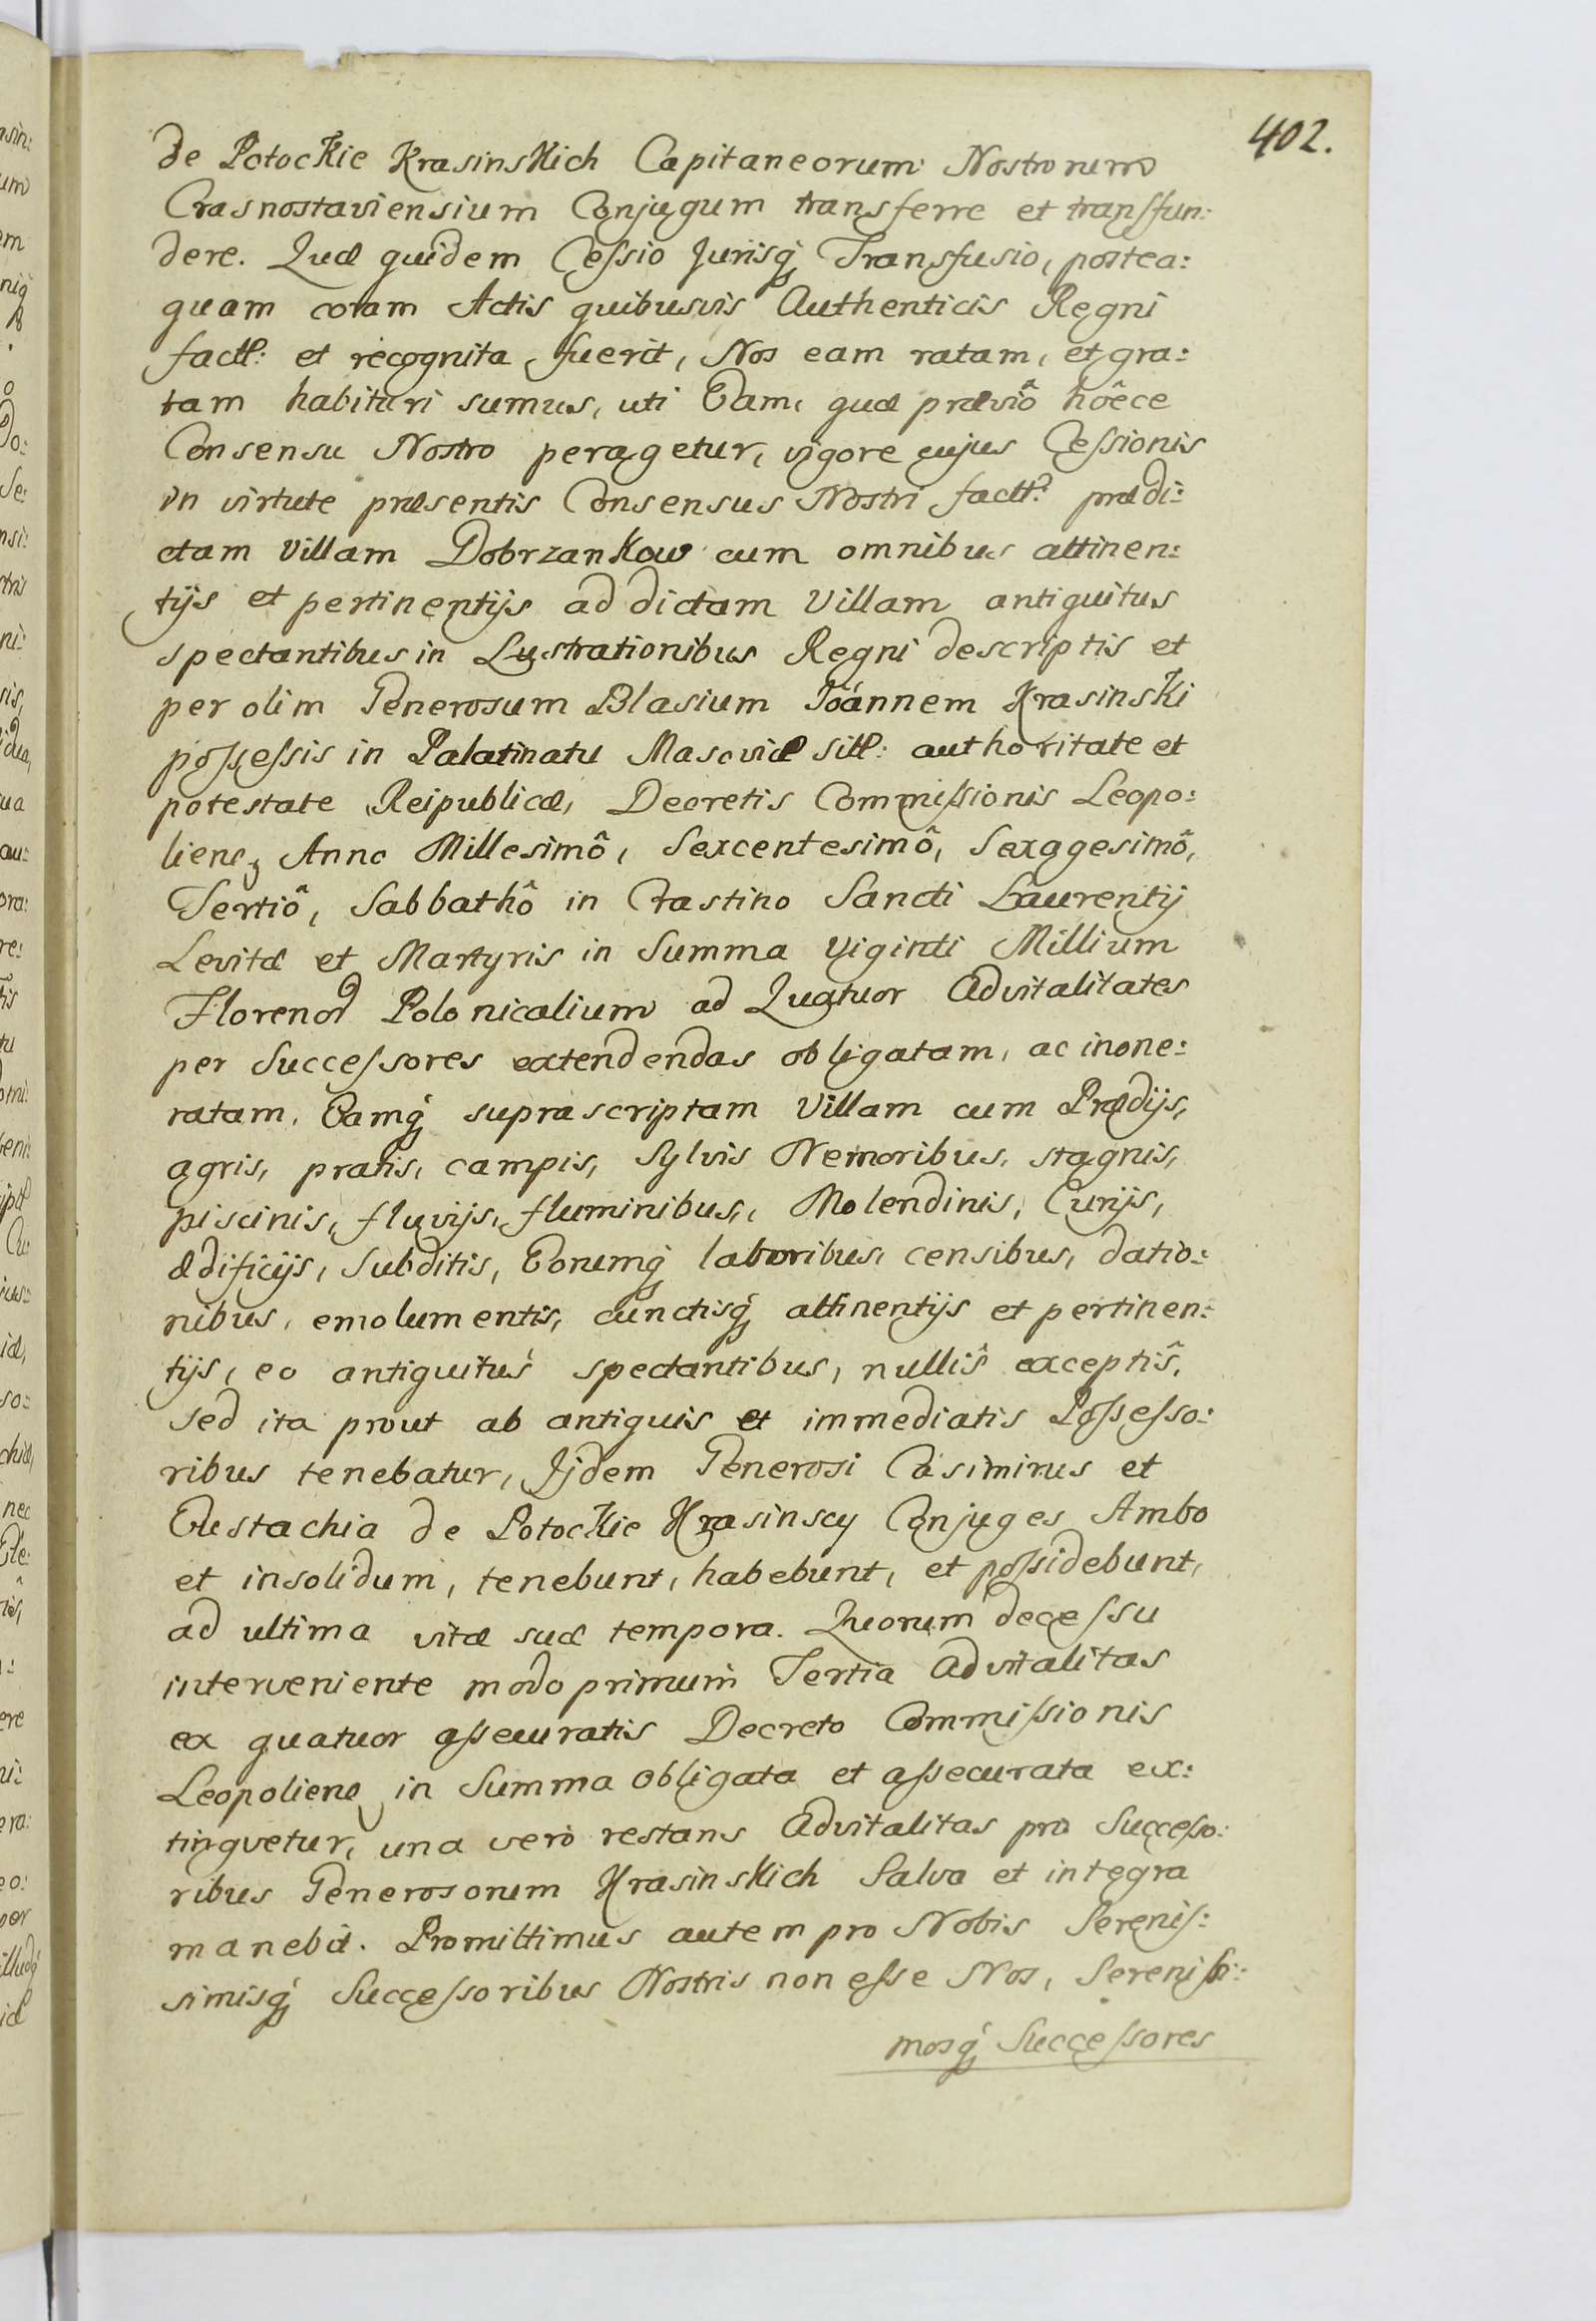 402.
de Potockie Krasinskich Capitaneorum Nostrorum
Crasnostaviensium Conjugum transferre et transfun:
dere. Quæ quidem Cessio Jurisq́; Transfusio, postea:
quam coram Actis quibusvis Authenticis Regni
factt: et recognita fuerit, Nos eam ratam, et gra:
tam habituri sumus, uti Eam, quæ præviô hôcce
Consensu Nostro peragetur, vigore cujus Cessionis
in virtute præsentis Consensus Nostri factt: prædi:
ctam Villam Dobrzankow cum omnibus attinen:
tijs et pertinentijs ad dictam Villam antiquitus
spectantibus in Lustrationibus Regni descriptis et
per olim Generosum Blasium Joánnem Krasinski
possessis in Palatinatu Masoviæ sitt: authoritate et
potestate Reipublicæ, Decretis Commissionis Leopo:
liens; Anno Millesimô, Sexcentesimô, Sexagesimô,
Tertiô, Sabbathô in Crastino Sancti Laurentij
Levitæ et Martyris in Summa Viginti Millium
Floreno℟ Polonicalium ad Quatuor Advitalitates
per Successores extendendas obligatam, ac inone:
ratam. Eamq́; suprascriptam Villam cum Prædijs,
agris, pratis, campis, Sylvis Nemoribus, stagnis,
piscinis, fluvijs, fluminibus, Molendinis, Curijs,
ædificijs, Subditis, Eorumq́; laboribus, censibus, datio:
nibus, emolumentis, cunctisq́; attinentijs et pertinen:
tijs, eo antiquitús spectantibus, nullîs exceptîs,
sed ita prout ab antiquis et immediatis Possesso:
ribus tenebatur, Ijdem Generosi Casimirus et
Eustachia de Potockie Krasinscy Conjuges Ambo
et insolidum, tenebunt, habebunt, et possidebunt,
ad ultima vitæ suæ tempora. Quorum decessu
interveniente modo primum Tertia Advitalitas
ex quatuor assecuratis Decreto Commissionis
Leopoliens; in Summa obligata et assecurata ex:
tinguetur, una verò restans Advitalitas pro Successo:
ribus Generosorum Krasinskich Salva et integra
manebit. Promittimus autem pro Nobis Serenis:
simisq́; Successoribus Nostris non esse Nos, Serenissi:
mosq́; Successores